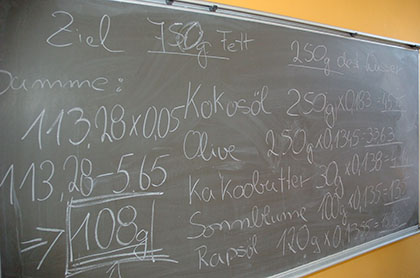 Ziel 750g Fett
250g dest. Wasser
Summe:
113,28x0,05
113,28-5,65
=> 108g
Kokosöl 250g x 0,183
Olive 250g x 0,1345 = 33,63
Kakaobutter 30g x 0,138
Sonnblume 100g x 0,135
Rapsöl 120g x 0,1355